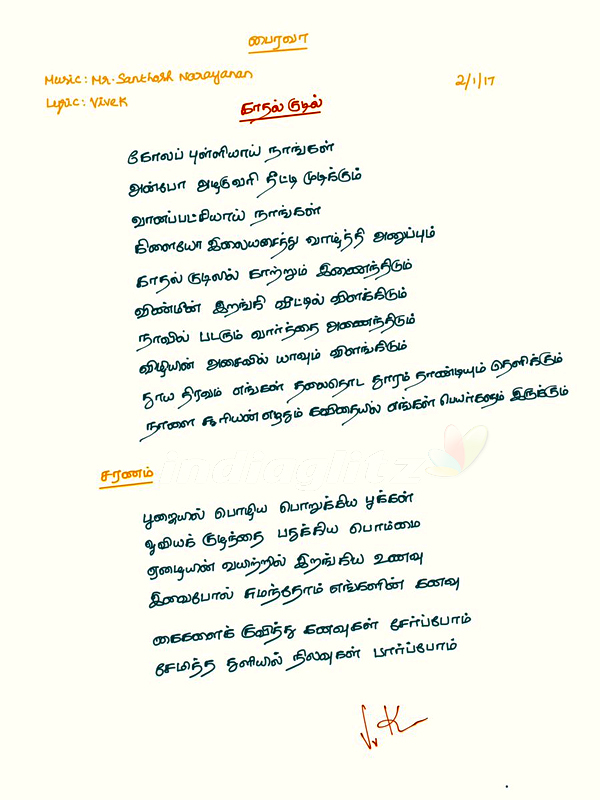 பைரவா
Music: Mr. Santhosh Narayanan
2/1/17
Lyric: Vivek
காதல் குடில்
கோலப் புள்ளியாய் நாங்கள்
அன்போ அடிகுவரி நீட்டி முடிக்கும்
வானப்பட்சியாய் நாங்கள்
கிளையோ இலையசைத்து வாழ்த்தி அனுப்பும்
காதல் குடிலில் காற்றும் இணைந்திடும்
விண்மீன் இறங்கி வீட்டில் விளக்கிடும்
நாவில் படரும் வார்த்தை அணைந்திடும்
விழியின் அசைவில் யாவும் விளங்கிடும்
தூய திரவம் எங்கள் தலைதொட தூரம் தாண்டியும் தெளிக்கும்
நாளை சூரியன் எழுதும் கவிதையில் எங்கள் பெயர்களும் இருக்கும்
indiaglitz
சரணம்
பூஜையில் பொழிய பொறுக்கிய பூக்கள்
ஓவியக் குழந்தை பதுக்கிய பொம்மை
ஏழையின் வயிற்றில் இறங்கிய உணவு
இவைபோல் சுமந்தோம் எங்களின் கனவு
கைகளைக் குவித்து கனவுகள் சேர்ப்போம்
சேமித்த துளியில் நிலவுகள் பார்ப்போம்